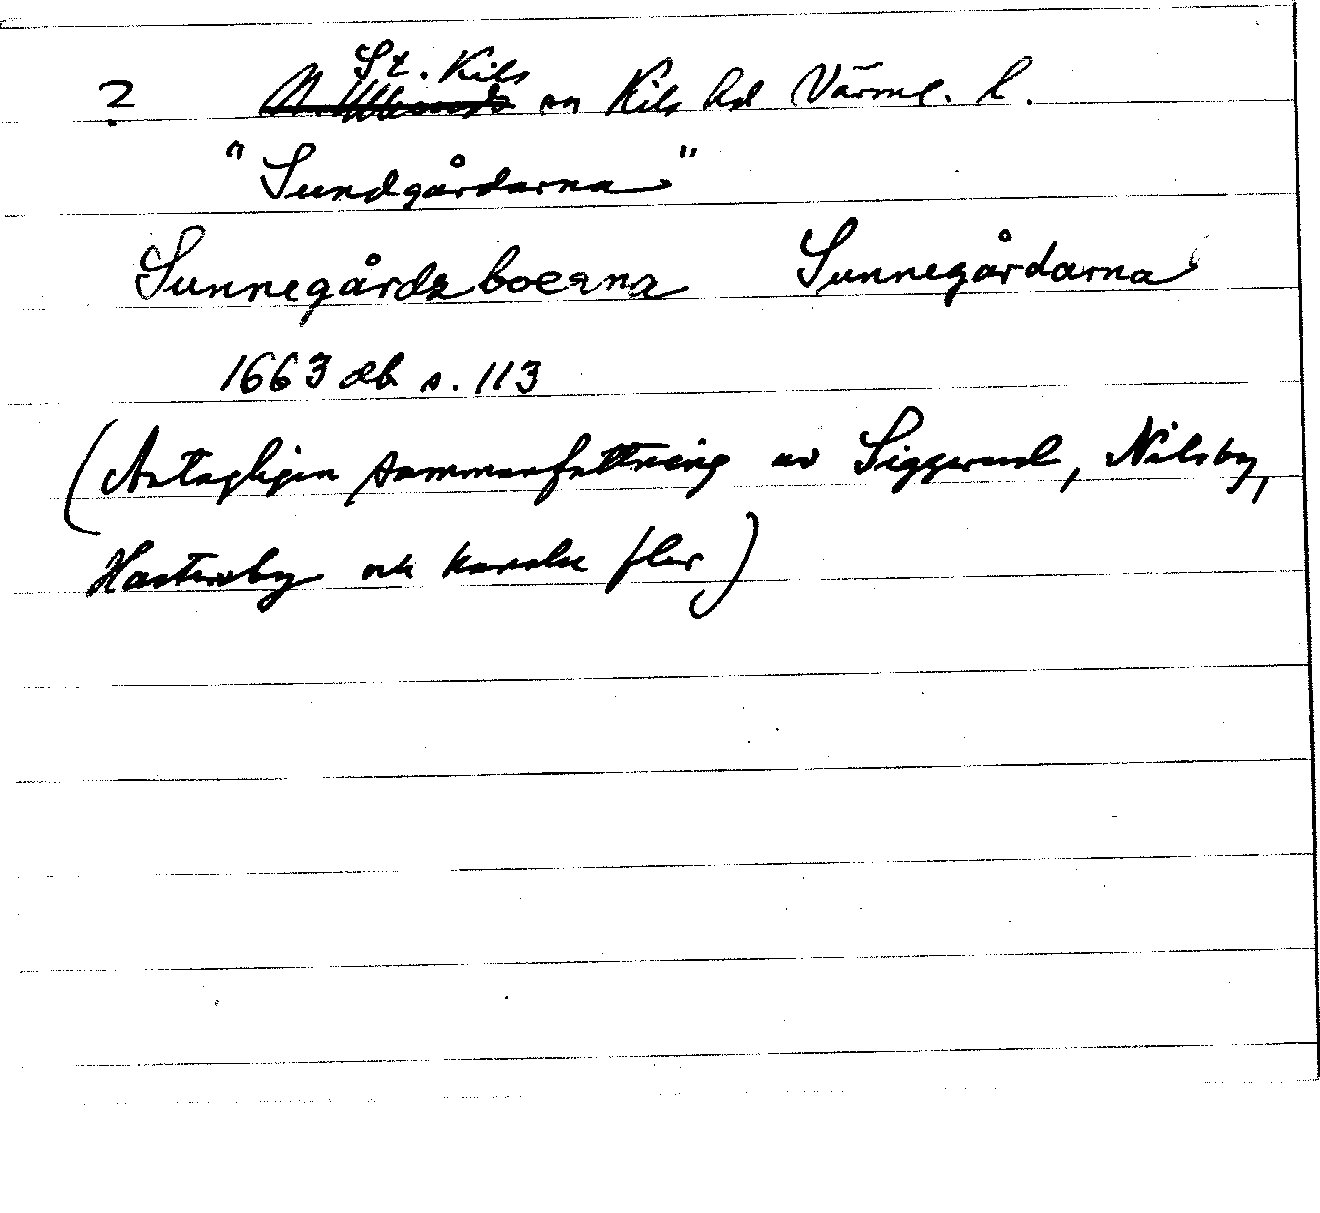 ? St. Kils sn Kils hd Värml. l.
"Sundgårdarna"
Sunnegårdzboerna Sunnegårdarna
1663 db s. 113
(Antagligen sammanfattning av Siggerud, Nilsby,
Hanteraby och kanske fler)